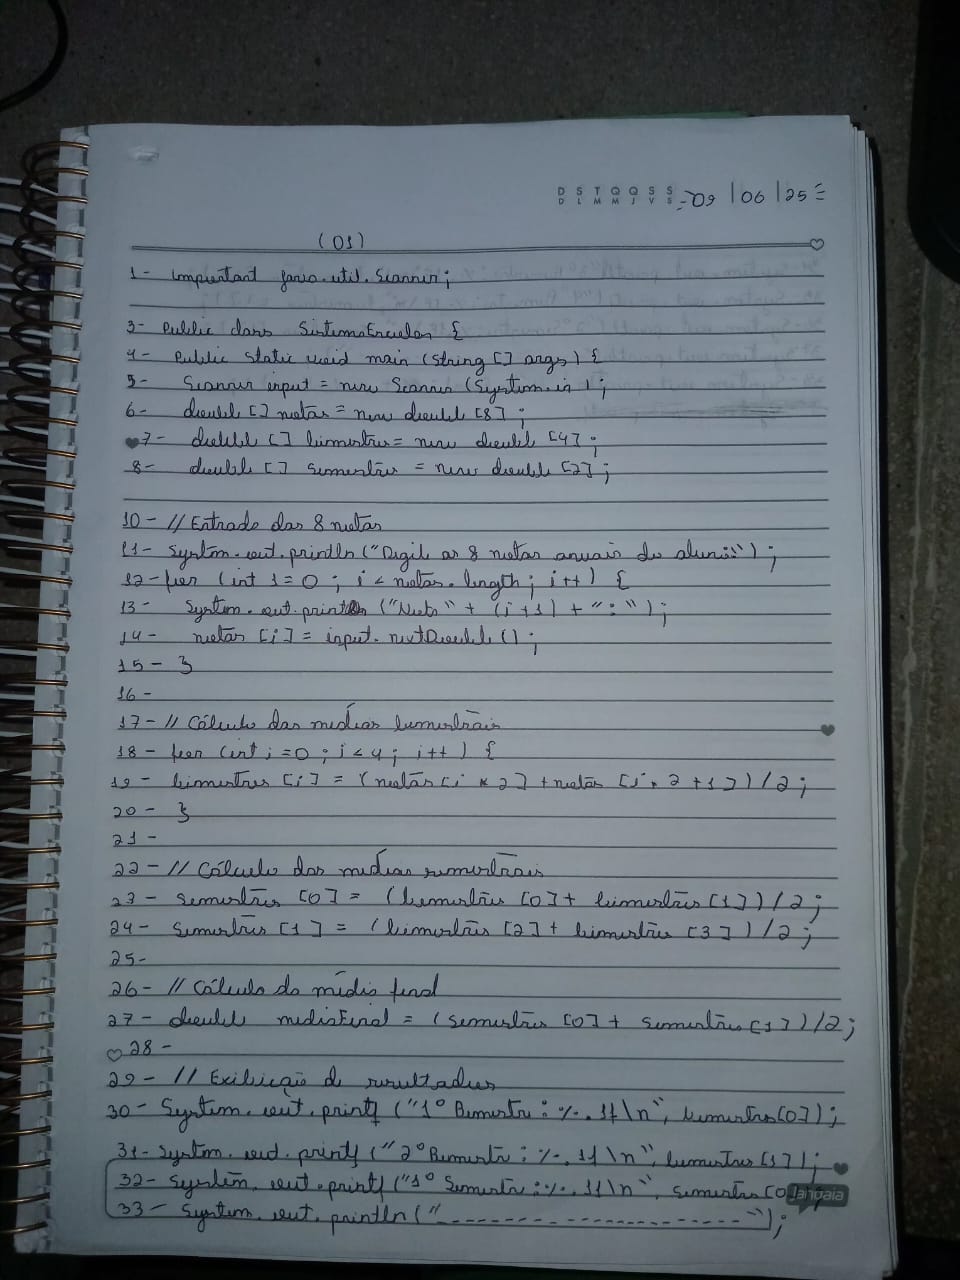 D S T Q Q S S
D L M M J V S
09 | 06 | 25
(01)
1- Importent java.util.Scanner;
3- Public class SistemaEscolar {
4- Public static void main (String [] args) {
5- Scanner input = new Scanner (System.in);
6- double [] notas = new double [8];
7- double [] bimestres = new double [4];
8- double [] semestres = new double [2];
10- // Entrada das 8 notas
11- System.out.println ("Digite as 8 notas anuais do aluno:");
12- for (int 1=0; i < notas.length; i++) {
13- System.out.print ("Nota" + (i+1) + ":");
14- notas [i] = input.nextDouble ();
15- }
16-
17- // Cálculo das médias bimestrais
18- for (int i=0; i<4; i++) {
19- bimestres [i] = (notas [i * 2] + notas [i * 2 + 1]) / 2;
20- }
21-
22- // Cálculo das médias semestrais
23- semestres [0] = (bimestres [0] + bimestres [1]) / 2;
24- semestres [1] = (bimestres [2] + bimestres [3]) / 2;
25-
26- // Cálculo da média final
27- double mediaFinal = (semestres [0] + semestres [1]) / 2;
28-
29- // Exibição de resultados
30- System.out.printf ("1º Bimestre: %.1f\n", bimestres[0]);
31- System.out.printf ("2º Bimestre: %.1f\n", bimestres [1]);
32- System.out.printf ("1º Semestre: %.1f\n", semestres [0]);
33- System.out.println ("------------------------");
Jandaia